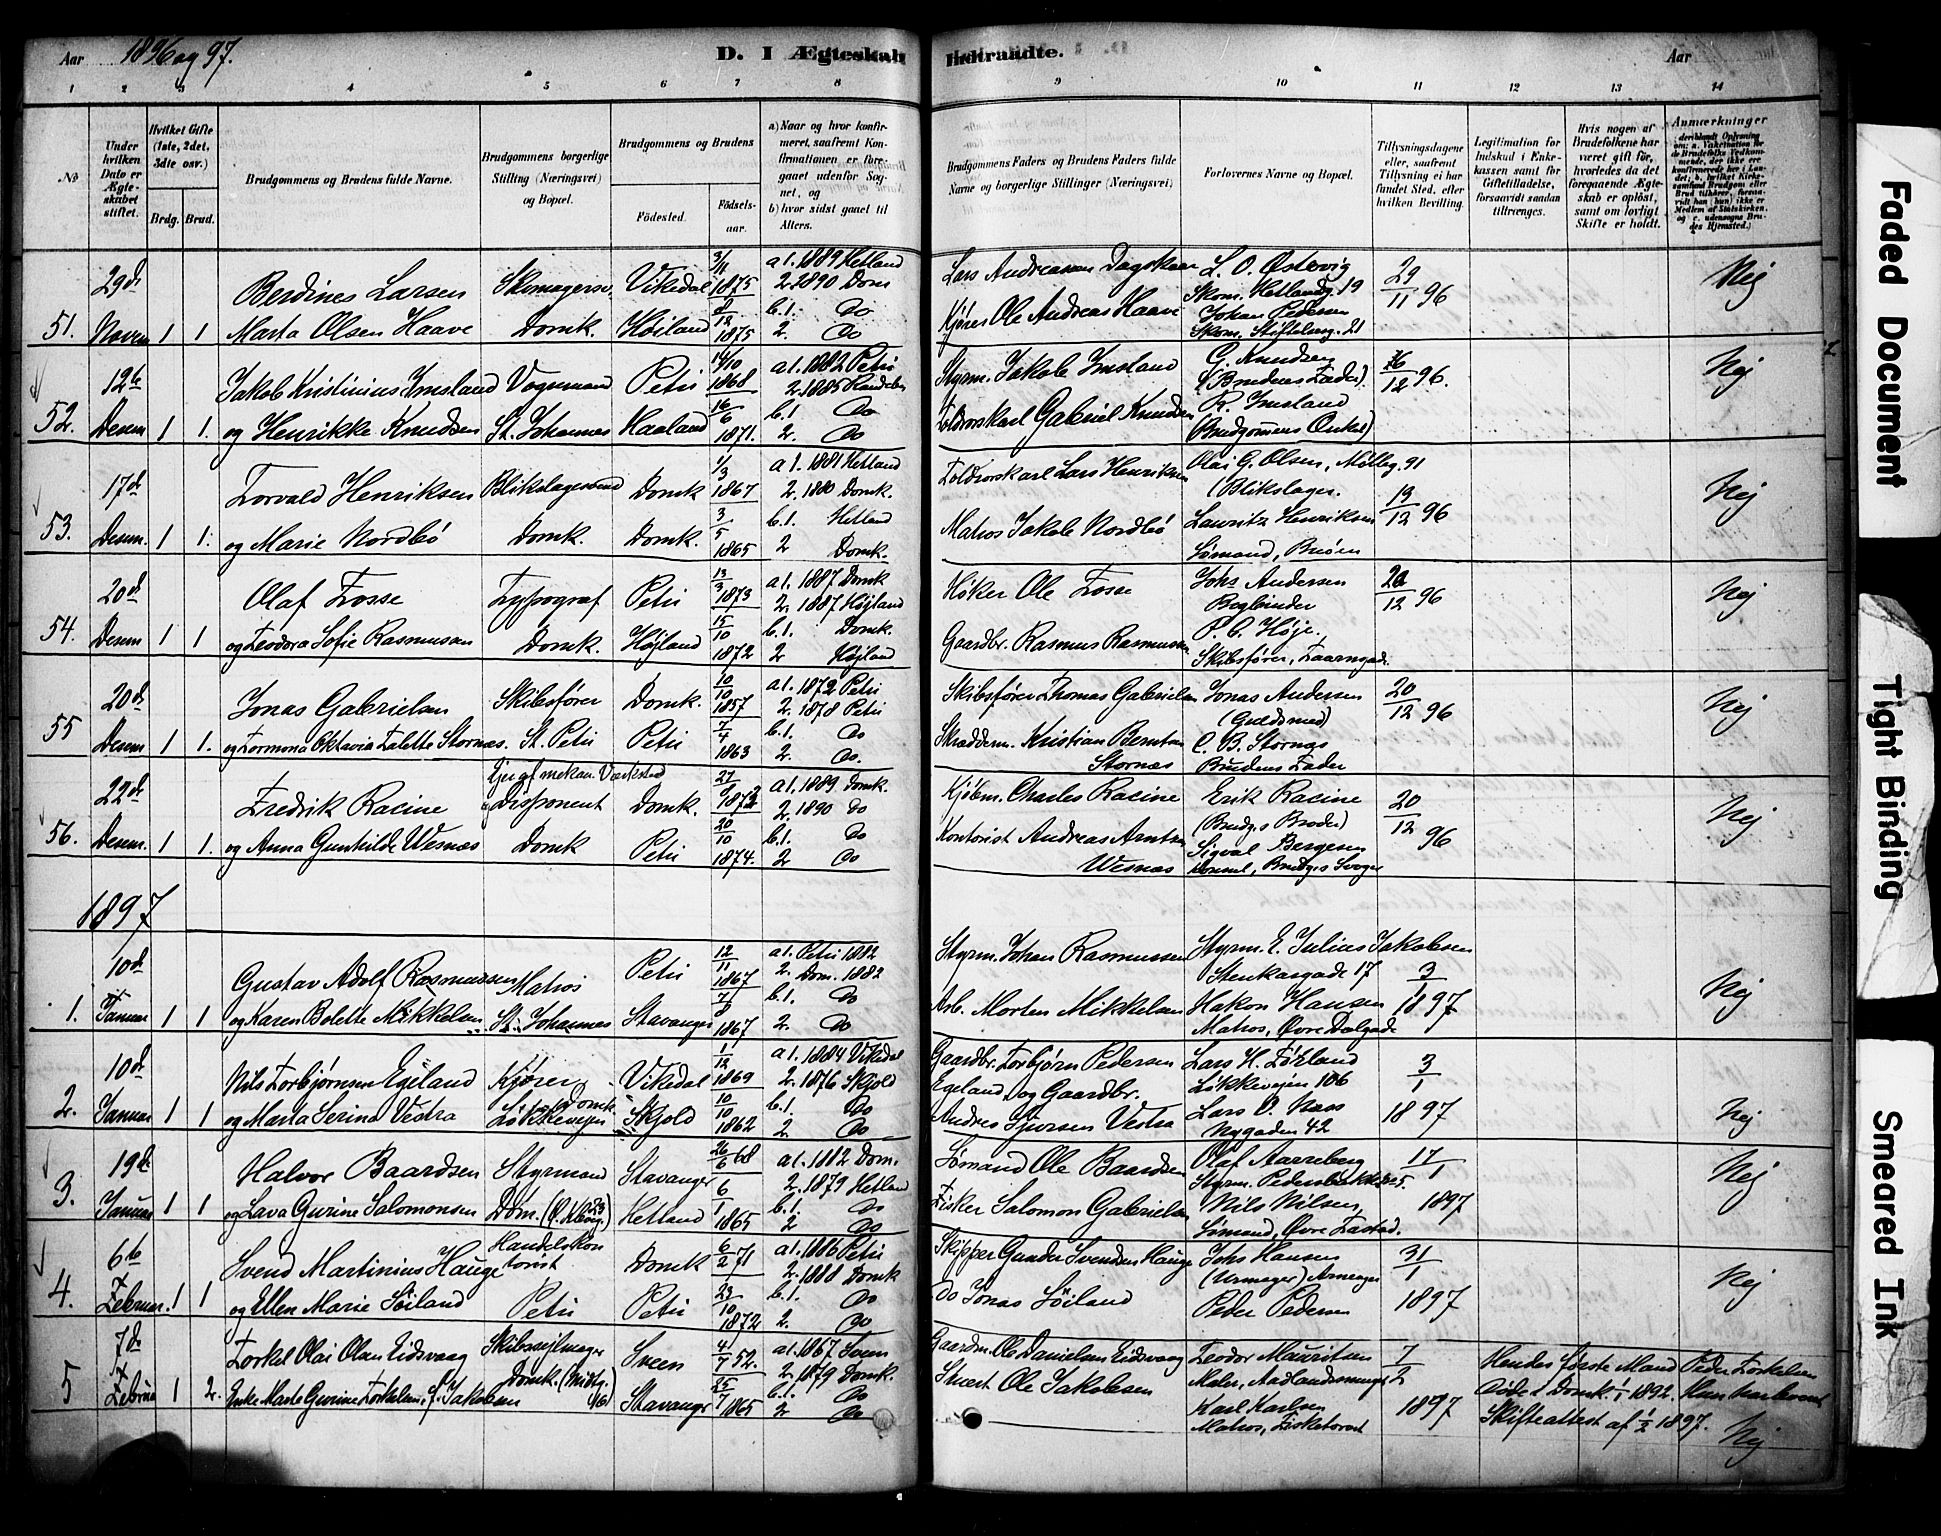 Aar 1896 og 97.
D. I Ægteskab Indtraadte.
Aar
1 2 3 4 5 6 7 8 9 10 11 12 13 14
No
Under hvilken Dato er Ægteskabet stiftet.
Hvilket Gifte (1ste, 2det, 3dte osv.)
Brdg. Brud.
Brudgommens og Brudens fulde Navne.
Brudgommens borgerlige Stilling (Næringsvei) og Bopæl.
Brudgommens og Brudens
Födested.
Födselsaar.
a) Naar og hvor konfirmeret, saafremt Konfirmationen er foregaaet udenfor Sognet, og
b) hvor sidst gaaet til Alters.
Brudgommens Faders og Brudens Faders fulde Navne og borgerlige Stillinger (Næringsvei)
Forlovernes Navne og Bopæl.
Tillysningsdagene eller, saafremt Tillysning ei har fundet Sted, efter hvilken Bevilling.
Legitimation for Indskud i Enkekassen samt for Giftetilladelse, forsaavidt saadan tiltrænges.
Hvis nogen af Brudefolkene har været gift för, hvorledes da det foregaaende Ægteskab er oplöst, samt om lovligt Skifte er holdt.
Anmærkninger
51. 29de Novem 1 1
Berdines Larsen
Marta Olsen Haave
Skomagersv. Domk.
Vikedal 3/11 1875
Høiland 9/12 1875
a1. 1889 Hetland
2. 1890 Dom
b.1 Do
2. Do
Lars Andreassen Dagskar
Kjører Ole Andreas Haave
L. O. Østevig
Skom. Hetlandsg. 19
Johan Pedersen
Skom. Stiftelsesg. 21
29/11 96
Nej
52. 12te Desem 1 1.
Jakob Kristinius Imsland
og Henrikke Knudsen
Vognmand St. Johannes
Petri 14/10 1868
Haaland 16/6 1871.
a1. 1882 Petri
2. 1885
b.1 Do
2. Do
Styrm. Jakob Imsland
Toldvorskarl Gabriel Knudsen
G. Knudsen
(Brudens Fader)
R. Imsland
(Brudgommens Onkel)
/12 96.
Nej
53. 17de Desem. 1 1.
Torvald Henriksen
og Marie Nordbö
Blikslagersvend Domk.
Domk 1/3 1867
Domk. 3/5 1865
a1. 1881 Hetland
2. 1880 Domk.
b.1. Hetland
2 Domk.
Toldvorskarl Lars Henriksen
Matros Jakob Nordbö
Olai G. Olsen, Mölleg. 91
(Blikslager.
Lauritz Henriksen
Sömand,
13/12 96
Nej
54. 20de Desem 1 1
Olaf Fosse
og Teodora Sofie Rasmussen
Typograf Domk.
Petri 13/3 1873
Højland 15/10 1872
a1. 1887 Domk
2. 1887 Højland
b.1. Domk.
2 Højland
Høker Ole Fosse
Gaardbr. Rasmus Rasmussen
Johs Andersen
Bogbinder
P. C. Höje,
Skibsfører, Taarngad.
20/12 96
Nej
55 20de Desem 1 1.
Jonas Gabrielsen
og Tormona Oktavia Talette Stornæs.
Skibsfører St. Petri
Domk. 10/10 1857
Petri 7/4 1863
a1. 1872 Petri
2. 1878 Petri
b.1. Do
2. Do.
Skibsfører Thomas Gabrielsen
Skrædderm. Kristian Berntsen Stornæs
Jonas Andersen
(Guldsmed)
C. B. Stornæs
Brudens Fader
20/12 96
Nej
56. 22de Desem. 1 1.
Fredrik Racine
og Anna Gunhilde Wesnæs
Ejer af mekan. Værksted og Disponent Domk
Domk. 27/9 1872
Petri 20/10 1874.
a1. 1889 Domk.
2. 1890 Do
b.1. Do
2 Do
Kjøbm. Charles Racine
Kontorist Andreas Arntsen Wesnæs
Erik Racine
(Brudg.s Broder)
Sigval Bergesen
Konsul, Brudg.s Svoger
20/12 96
Nej
1897
1. 10de Januar 1 1
Gustav Adolf Rasmussen
og Karen Bolette Mikkelsen
Matros St. Johannes
Petri 12/11 1867
Stavanger 7/8 1867
a1. Petri 1882
2. Dom. 1882
b.1. Do
2. Do
Styrm. Johan Rasmussen
Arb. Morten Mikkelsen
Styrm. E. Julius Jakobsen
Stenkargade 17
Hakon Hansen
Matros, Øvre Dalgade
3/1 1897
Nej
2. 10de Januar 1 1
Nils Torbjørnsen Egeland
og Marta Serina Vestra
Kjører Domk. Løkkevejen
Vikedal 1/12 1869
Skjold 10/10 1862
a1. 1884 Vikedal
2. 1876 Skjold
b.1. Do
2 Do
Gaardbr. Torbjørn Pedersen Egeland og Gaardbr.
Andres Sjursen Vestra
Lars H. Tökland
Løkkevejen 106
Lars O. Næss
Nygaden 42
3/1 1897
Nej
3. 19de Januar 1 1
Halvor Baardsen
og Lava Gurine Salomonsen
Styrmand Dom.
Stavanger 26/6 68
Hetland 6/1 1865
a1. 1882 Dom.
2. 1879 Hetland
b.1 Do
2 Do
Sømand Ole Baardsen
Fisker Salomon Gabrielsen
Olaf Aarreberg
Styrm. Pedersbakken 5.
Nils Nilsen,
Sömand, Øvre
17/1 1897
Nej
4. 6te Februar. 1 1
Svend Martinius Hauge
og Ellen Marie Söiland
Handelskontorist Petri
Domk 6/2 71
Petri 23/10 1872
a1. 1886 Petri
2. 1888 Domk
b.1. Do
2. Do
Skipper Gunder Svendsen Hauge
Do Jonas Söiland
Johs Hansen
(Urmager)
Peder Pedersen
31/1 1897
Nej
5 7de Februar 1 2.
Torkel Olai Olsen Eidsvaag
Enke Marte Gurine Torkelsen, f. Jakobsen
Skibssejlmager Domk.
Sveen 4/7 52.
Stavanger 25/7 1865
a1. 1867 Sveen
2. 1879 Domk.
b.1. Do
2 Do
Gaardm. Ole Danielsen Eidsvaag
Stuert Ole Jakobsen
Teodor Mauritsen
Maler,
Karl Karlsen
Matros, Fisketorvet
7/2 1897
Hendes første Mand Peder Torkelsen
døde i Domk. 1/1 1892.
Skifteattest af 1/2 1897.
Nej
Faded Document
Tight Binding
Smeared Ink